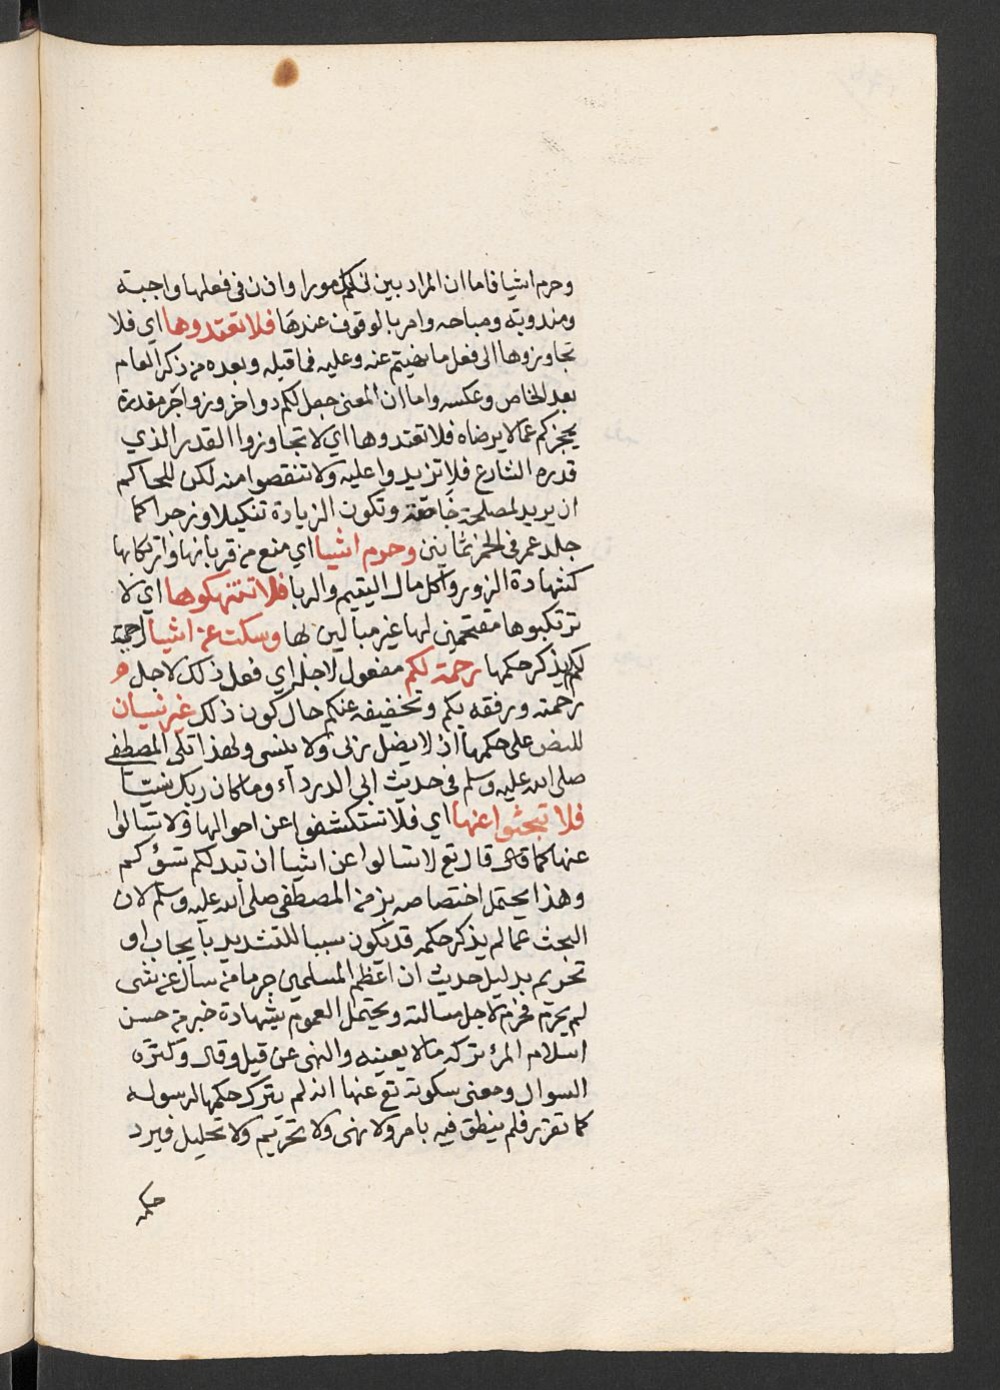 وحرم اشيا فاما ان المراد بين لكم امورا واذن فى فعلها واجبة
ومندوبة ومباحه وامر بالوقوف عندها فلا تعتدوها اي فلا
تجاوزوها الى فعل ما نهيتم عنه وعليه فما قبله وبعده من ذكر العام
بعد الخاص وعكسه واما ان المعنى جعل لكم دواخر وزواجر مقدرة
يحجزكم عما لا يرضاه فلا تعتدوها اي لا تجاوزوا القدر الذي
قدره الشارع فلا تزيدوا عليه ولا تنقصوا منه لكن للحاكم
ان يريد لمصلحة وتكون الزيادة تنكيلا وزجرا كما
جلد عمر فى الخمر ثمانين وحرم اشيا اي منع من قربانها وارتكابها
كشهادة الزور واكل مال اليتيم والربا فلا تنتهكوها اي لا
ترتكبوها مقتحمين لها غير مبالين لها وسكت عن اشيا رحمة
لكم يذكر حكمها رحمة لكم مفعول لاجله اي فعل ذلك لاجل
رحمته ورفقه بكم وتخفيفه عنكم حال كون ذلك غير نسيان
للنص على حكمها اذ لا يضل ربى ولا ينسى ولهذا تلى المصطفى
صلى الله عليه وسلم فى حديث ابى الدرداء وما كان ربك نسيا
فلا تبحثوا عنها اي فلا تستكشفوا عن احوالها ولا تسالوا
عنها كما قال تع لا تسالوا عن اشيا ان تبد لكم تسؤكم
وهذا يحتمل اختصاصه بزمن المصطفى صلى الله عليه وسلم لان
البحث عما لم يذكر حكمه قد يكون سببا للتشديد بايجاب او
تحريم بدليل حديث ان اعظم المسلمين جرما من سال عن شى
لم يحرم فحرم لاجل مسالته ويحتمل العموم بشهادة خبر من حسن
اسلام المرء تركه ما لا يعينه والنهى عن قيل وقال وكثرة
السوال ومعنى سكوته تع عنها انه لم يترك حكمها لرسوله
كما تقرر فلم ينطق فيه بامر ولا نهى ولا تحريم ولا تحليل فيرد
حكمه